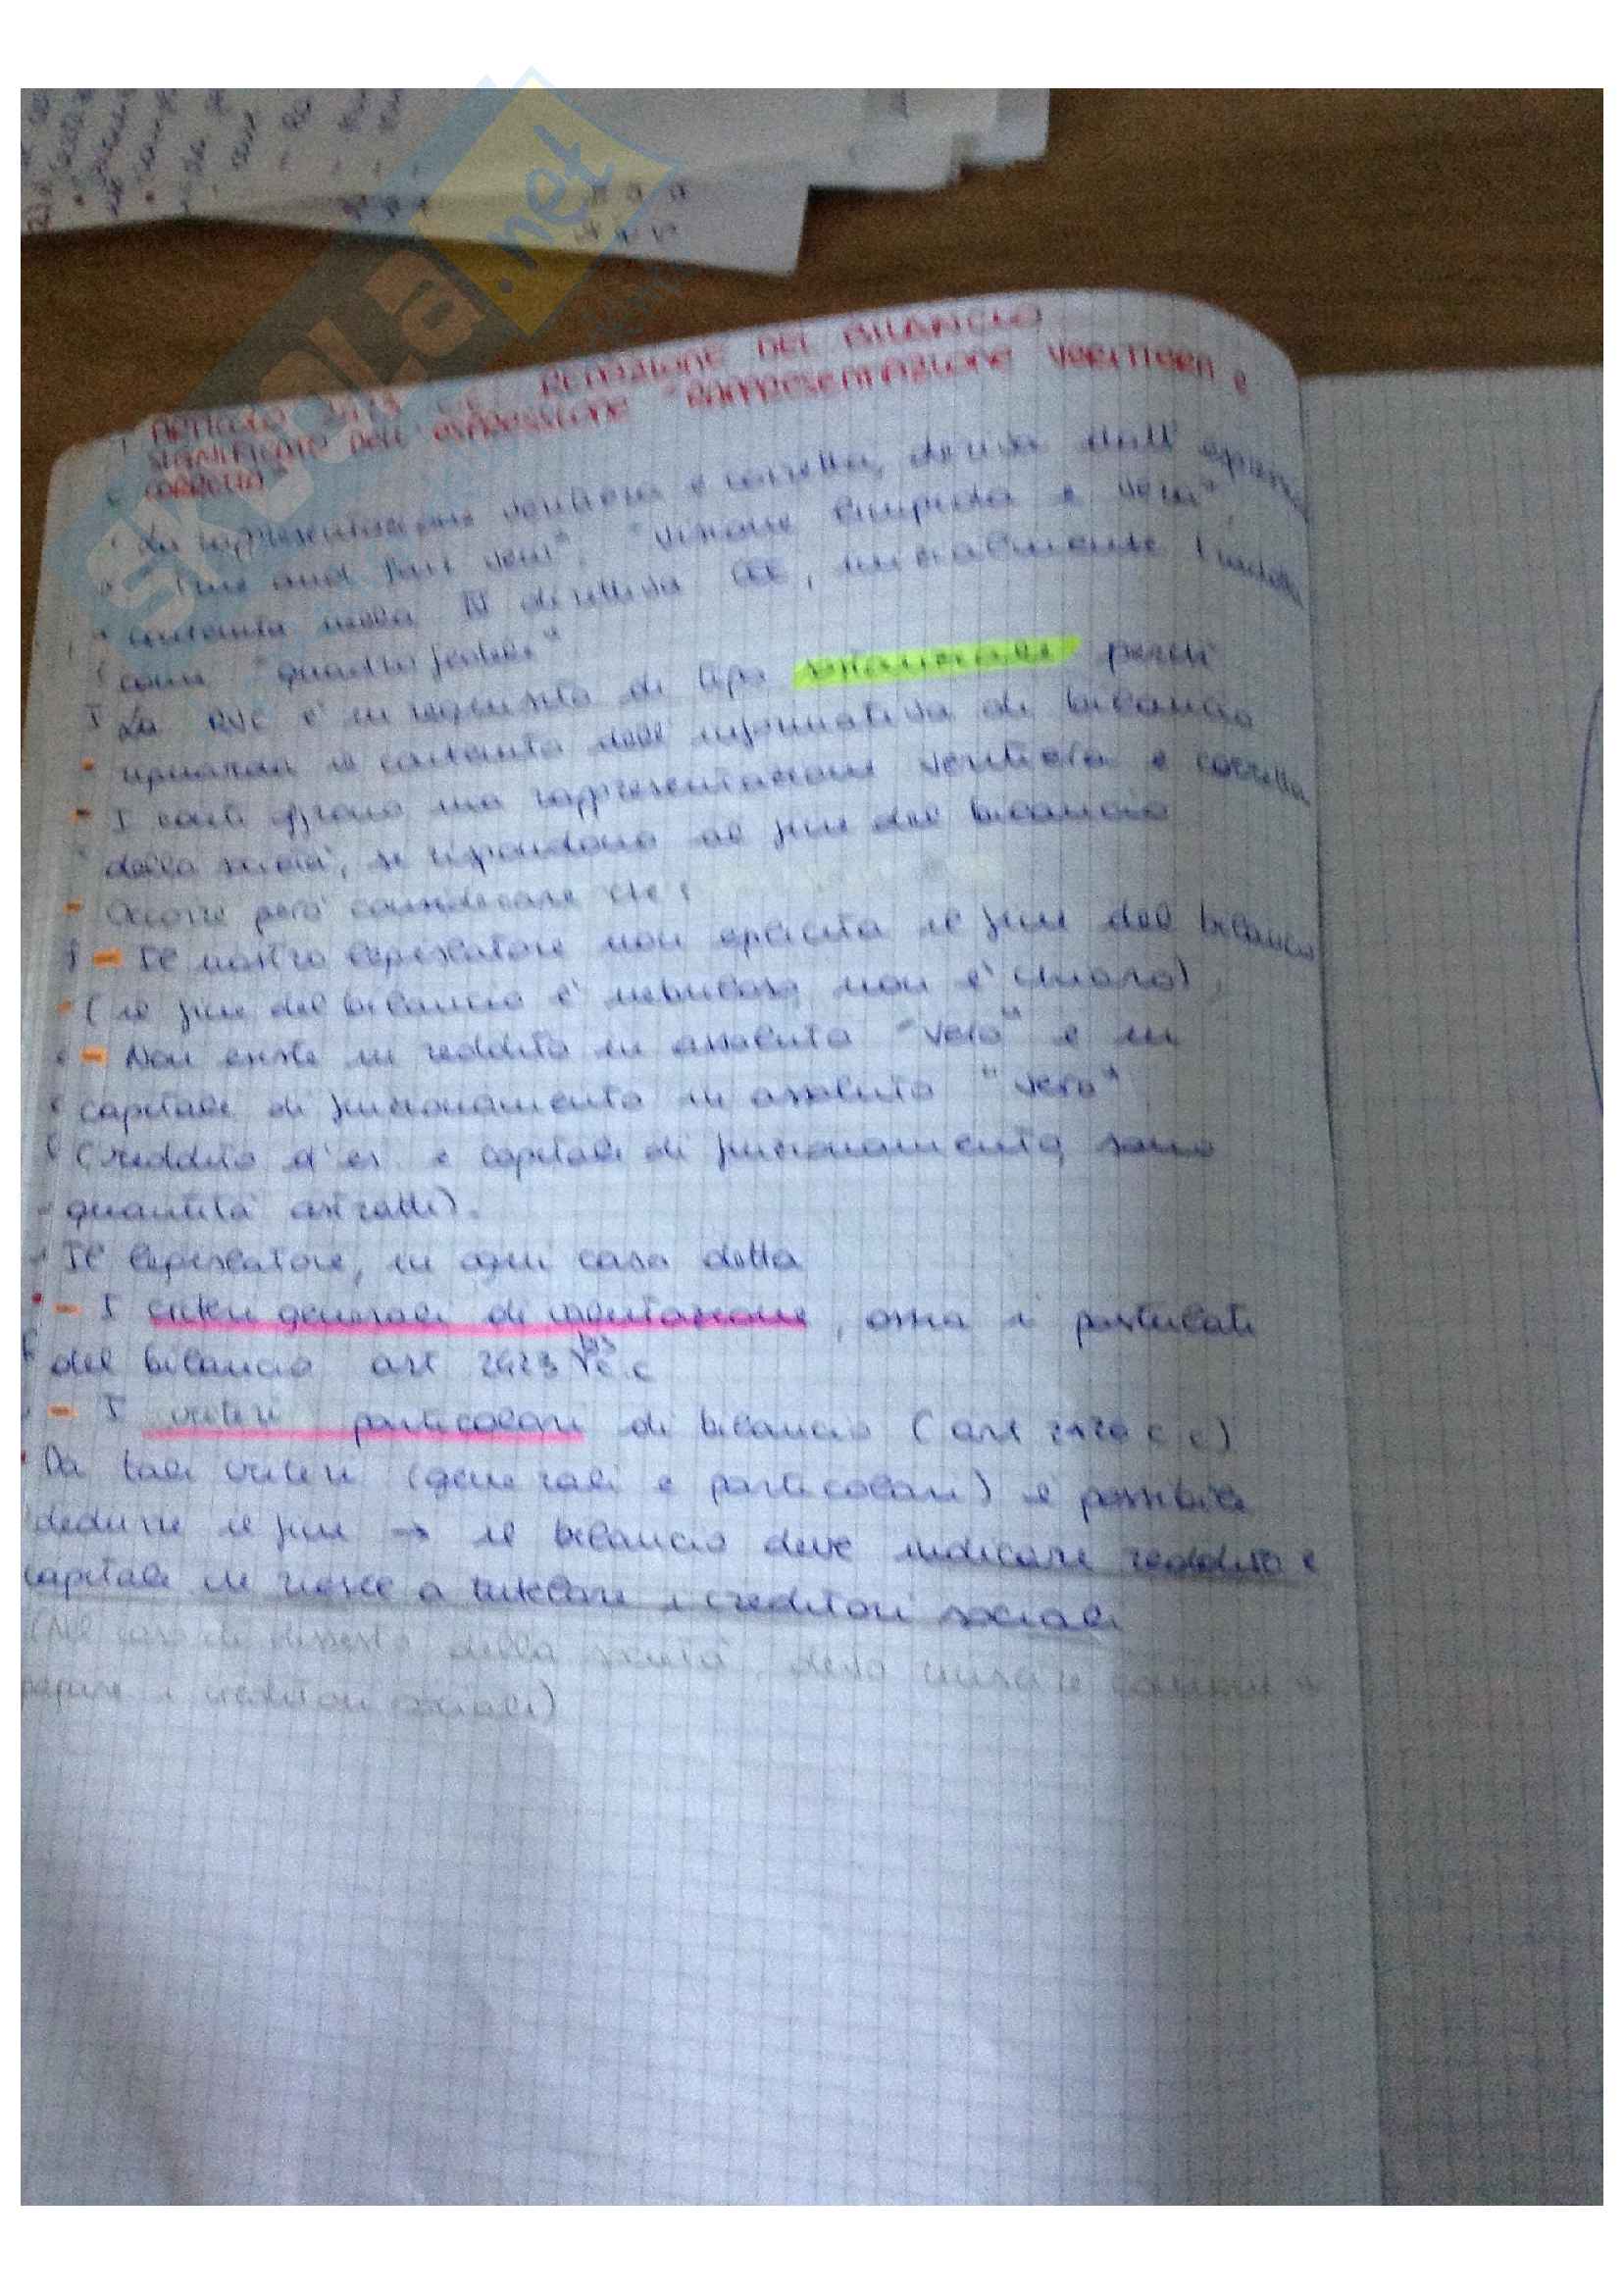 SKUOLA.net
ARTICOLO 2423 C.C. REDAZIONE DEL BILANCIO
SIGNIFICATO DELL'ESPRESSIONE "RAPPRESENTAZIONE VERITIERA E
CORRETTA"
La rappresentazione veritiera e corretta, deriva dall'
"True and fair "Visione limpida e vera"
contenuta nella IV direttiva CEE, inizialmente tradotta
come "quadro fedele"
La RVC è un requisito di tipo sostanziale perché
riguarda il contenuto dell'informativa di bilancio
I conti offrono una rappresentazione veritiera e corretta
della società, se rispondono al fine del bilancio
Occorre però considerare che:
- Il nostro legislatore non esplicita il fine del bilancio
(il fine del bilancio è nebuloso, non è chiaro)
- Non esiste un reddito in assoluto "vero" e un
capitale di funzionamento in assoluto "vero"
(reddito d'es. e capitale di funzionamento, sono
quantità astratte).
Il legislatore, in ogni caso detta
- I criteri generali di valutazione, ossia i postulati
del bilancio art 2423 bis c.c
- I criteri particolari di bilancio (art 2426 c.c)
Da tali criteri (generali e particolari) è possibile
dedurre il fine → il bilancio deve indicare reddito e
capitale in modo a tutelare i creditori sociali
(Nel caso di dissesto della società, devo
pagare i creditori sociali)